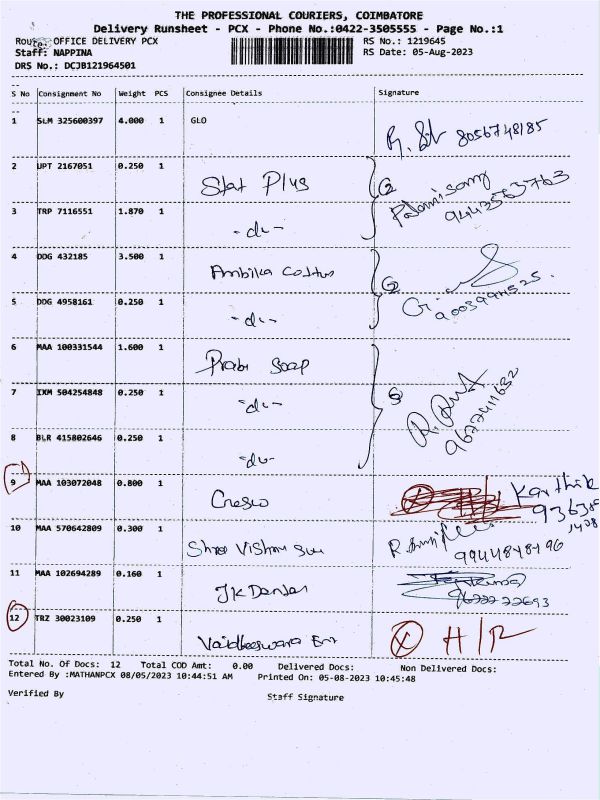 THE PROFESSIONAL COURIERS, COIMBATORE
Delivery Runsheet - PCX - Phone No.:0422-3505555 - Page No.:1
Route: OFFICE DELIVERY PCX RS No.: 1219645
Staff: NAPPINA RS Date: 05-Aug-2023
DRS No.: DCJB121964501
S No Consignment No Weight PCS Consignee Details Signature
1 SLM 325600397 4.000 1 GLO 8056748185
2 UPT 2167051 0.250 1 Stat Plus Palanisamy
3 TRP 7116551 1.870 1 -do- 9443563763
4 DDG 432185 3.500 1 Ambika
5 DDG 4958161 0.250 1 -do-
6 MAA 100331544 1.600 1 Prabi Soap
7 IXM 504254848 0.250 1 -do- 9677411632
8 BLR 415802646 0.250 1 -do-
9 MAA 103072048 0.800 1 Karthik
10 MAA 570642809 0.300 1
11 MAA 102694289 0.160 1 JK
12 TRZ 30023109 0.250 1 H/R
Total No. Of Docs: 12 Total COD Amt: 0.00 Delivered Docs: Non Delivered Docs:
Entered By :MATHANPCX 08/05/2023 10:44:51 AM Printed On: 05-08-2023 10:45:48
Verified By Staff Signature